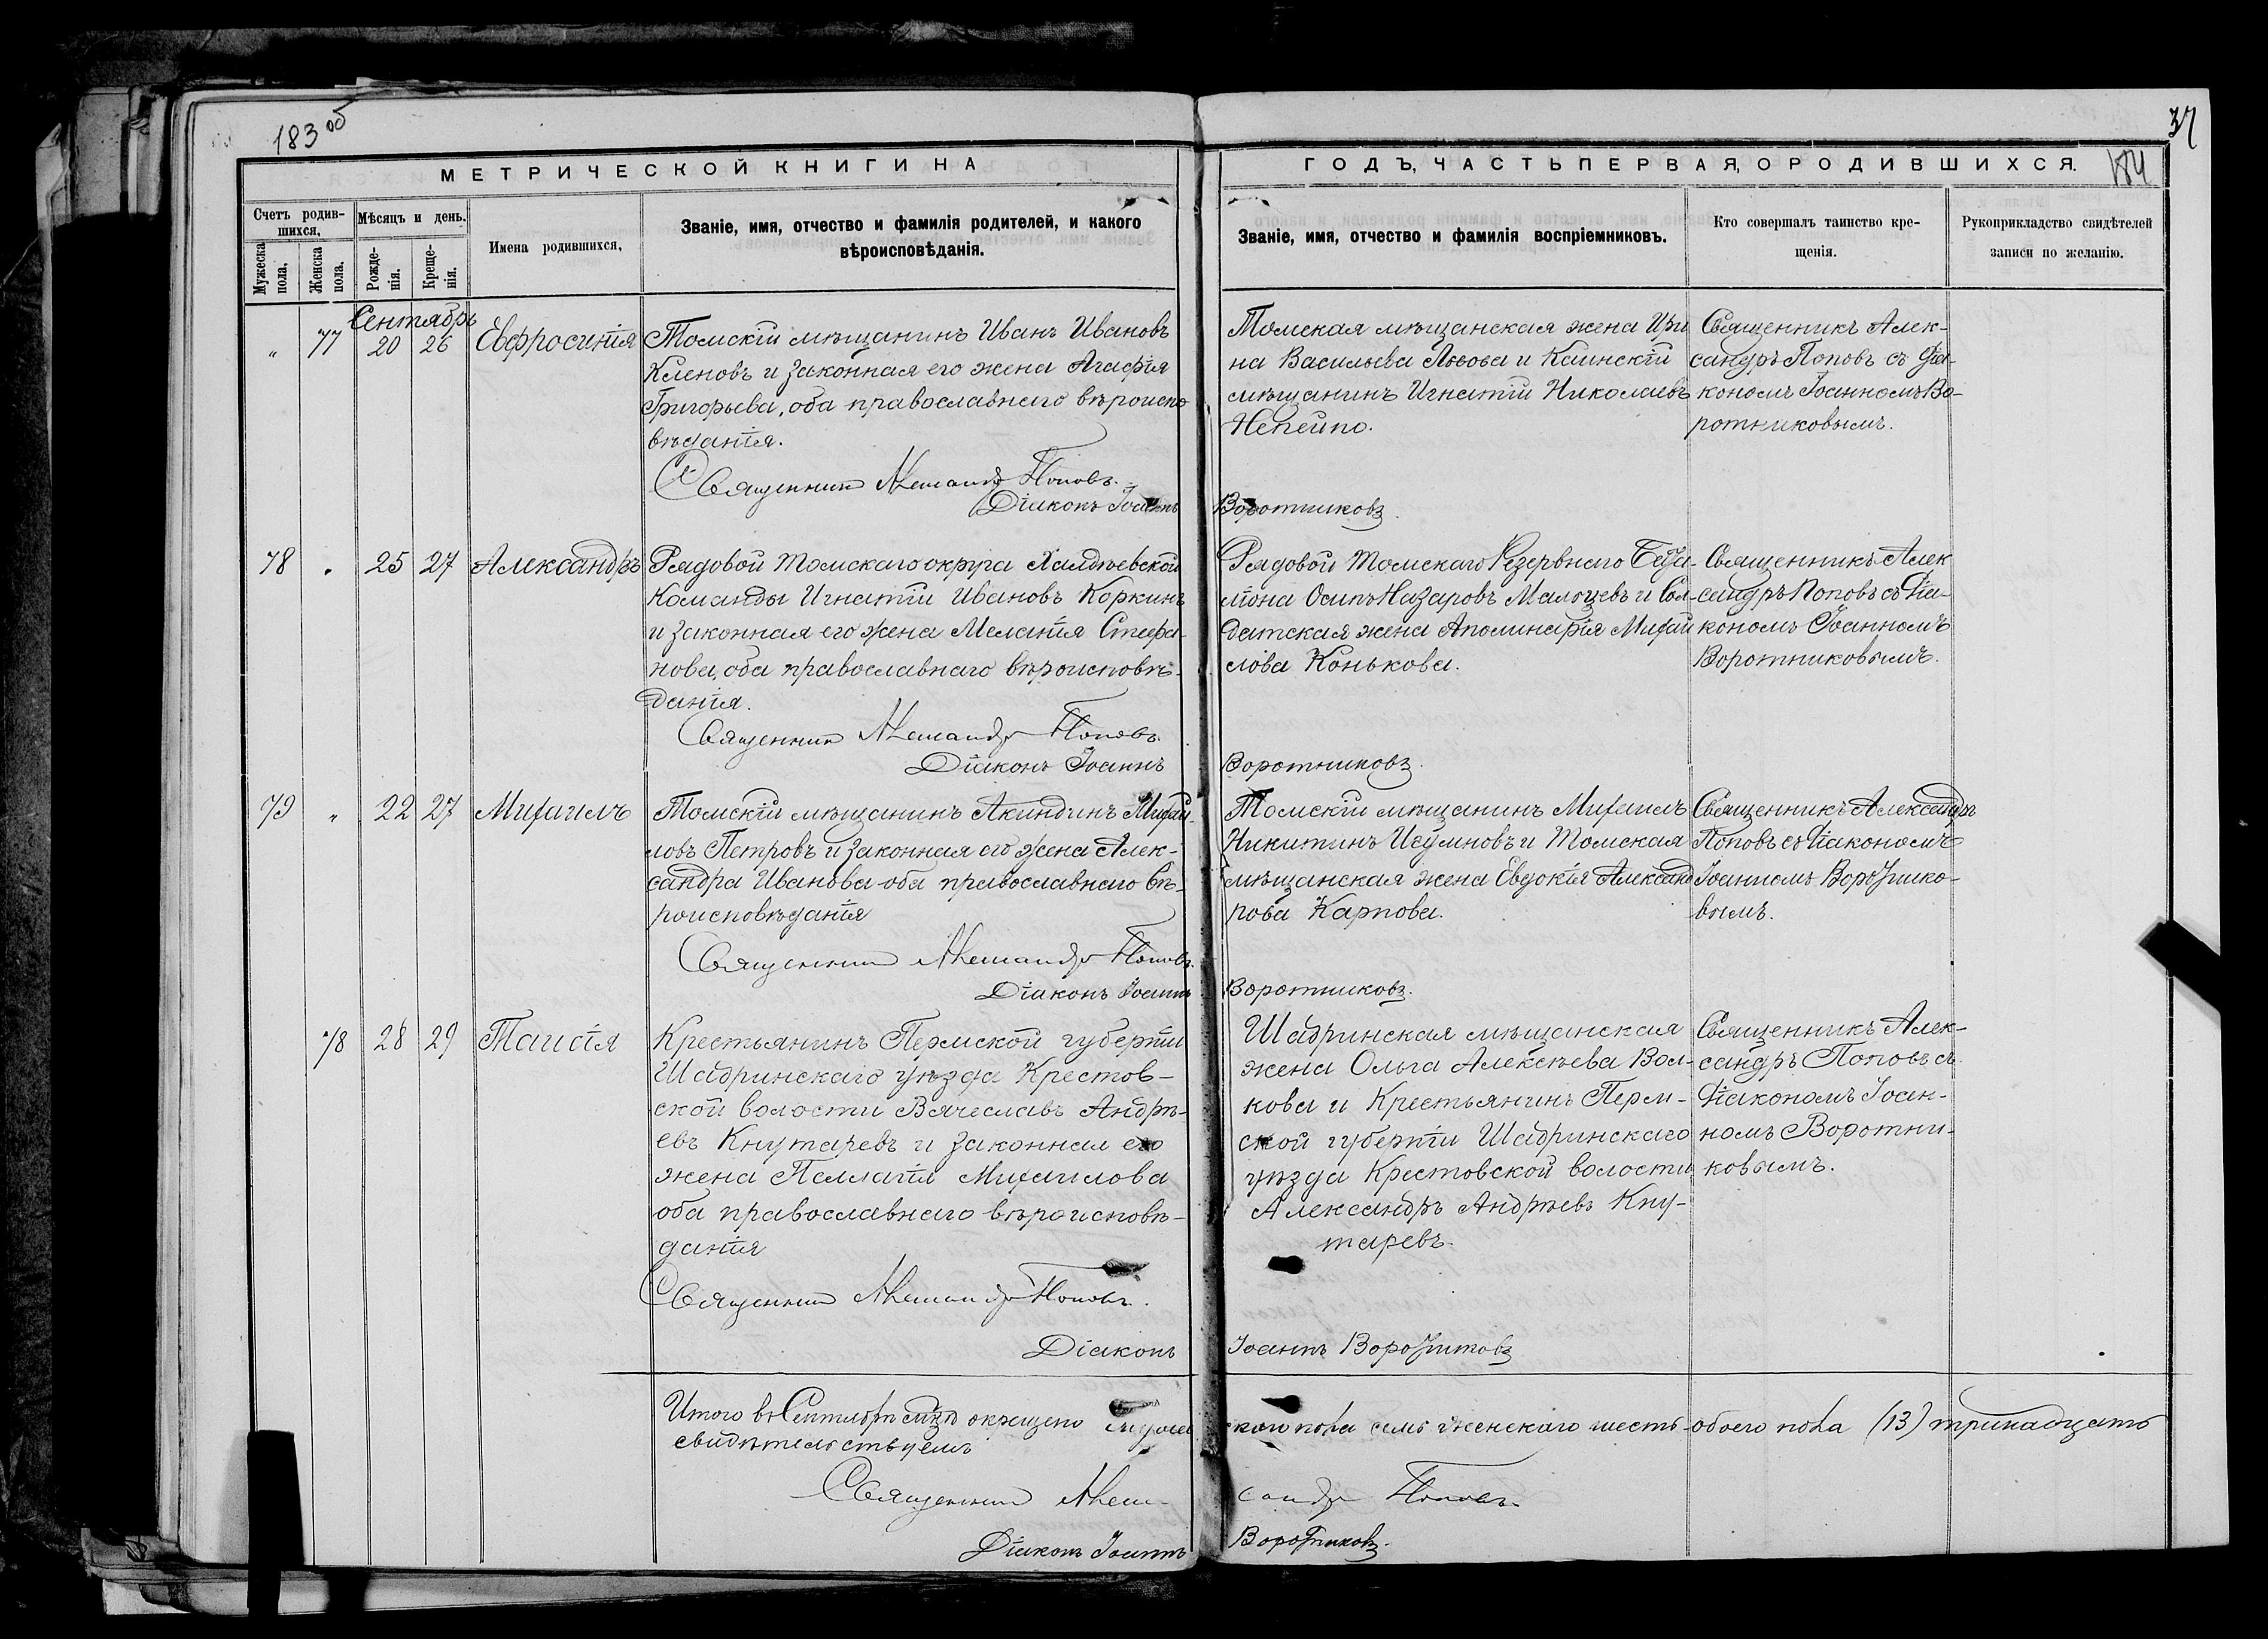 183 об
37
184
МЕТРИЧЕСКОЙ КНИГИ НА
ГОДЪ, ЧАСТЬ ПЕРВАЯ, О РОДИВШИХСЯ.
Счетъ родив-
шихся,
Мужеска
пола,
Женска
пола.
Мѣсяцъ и день.
Рожде-
нія.
Креще-
нія.
Имена родившихся,
Званіе, имя, отчество и фамилія родителей, и какого
вѣроисповѣданія.
Званіе, имя, отчество и фамилія воспріемниковъ.
Кто совершалъ таинство кре-
щенія.
Рукоприкладство свидѣтелей
записи по желанію.
Сентябрь
" 77 20 26 Евфросинія
Томскій мѣщанинъ Иванъ Ивановъ
Кленовъ и законная его жена Агафія
Григорьева, оба православнаго вѣроиспо
вѣданія.
Священникъ Александръ Поповъ.
Діаконъ Іоаннъ Воротниковъ.
Томская мѣщанская жена Ири
на Васильева Львова и Каинскій
мѣщанинъ Игнатій Николаевъ
Непейпо.
Священникъ Алек-
сандръ Поповъ съ Діа-
кономъ Іоанномъ Во-
ротниковымъ.
78 " 25 27 Александръ
Рядовой Томскаго округа Халдѣевской
Команды Игнатій Ивановъ Коркинъ
и законная его жена Меланія Стефа-
нова, оба православнаго вѣроисповѣ-
данія.
Священникъ Александръ Поповъ.
Діаконъ Іоаннъ Воротниковъ.
Рядовой Томскаго Резервнаго Бата-
ліона Осипъ Назаровъ Мальцевъ и Сол-
датская жена Аполинарія Михаи
лова Конькова.
Священникъ Алек
сандръ Поповъ съ Діа-
кономъ Іоанномъ
Воротниковымъ.
79 " 22 27 Михаилъ
Томскій мѣщанинъ Акиндинъ Михай-
ловъ Петровъ и законная его жена Алек-
сандра Иванова оба православнаго вѣ-
роисповѣданія
Священникъ Александръ Поповъ.
Діаконъ Іоаннъ Воротниковъ.
Томскій мѣщанинъ Михаилъ
Никитинъ Изумновъ и Томская
мѣщанская жена Евдокія Александ
рова Карпова.
Священникъ Александръ
Поповъ съ Діакономъ
Іоанномъ Воротнико-
вымъ.
78 28 29 Таисія
Крестьянинъ Пермской губерніи
Шадринскаго уѣзда Крестов-
ской волости Вячеславъ Андрѣ-
евъ Кнутаревъ и законная его
жена Пелагія Михаилова
оба православнаго вѣроисповѣ-
данія
Священникъ Александръ Поповъ.
Діаконъ Іоаннъ Воротниковъ
Шадринская мѣщанская
жена Ольга Алексѣева Вол-
кова и Крестьянинъ Перм-
ской губерніи Шадринскаго
уѣзда Крестовской волости
Александръ Андрѣевъ Кну-
таревъ.
Священникъ Алек-
сандръ Поповъ съ
Діакономъ Іоан-
номъ Воротни-
ковымъ.
Итого въ Сентябрѣ мцѣ окрещено мужескаго пола семь женскаго шесть - обоего пола (13) тринадцать
свидѣтельствуемъ
Священникъ Александръ Поповъ.
Діаконъ Іоаннъ Воротниковъ.